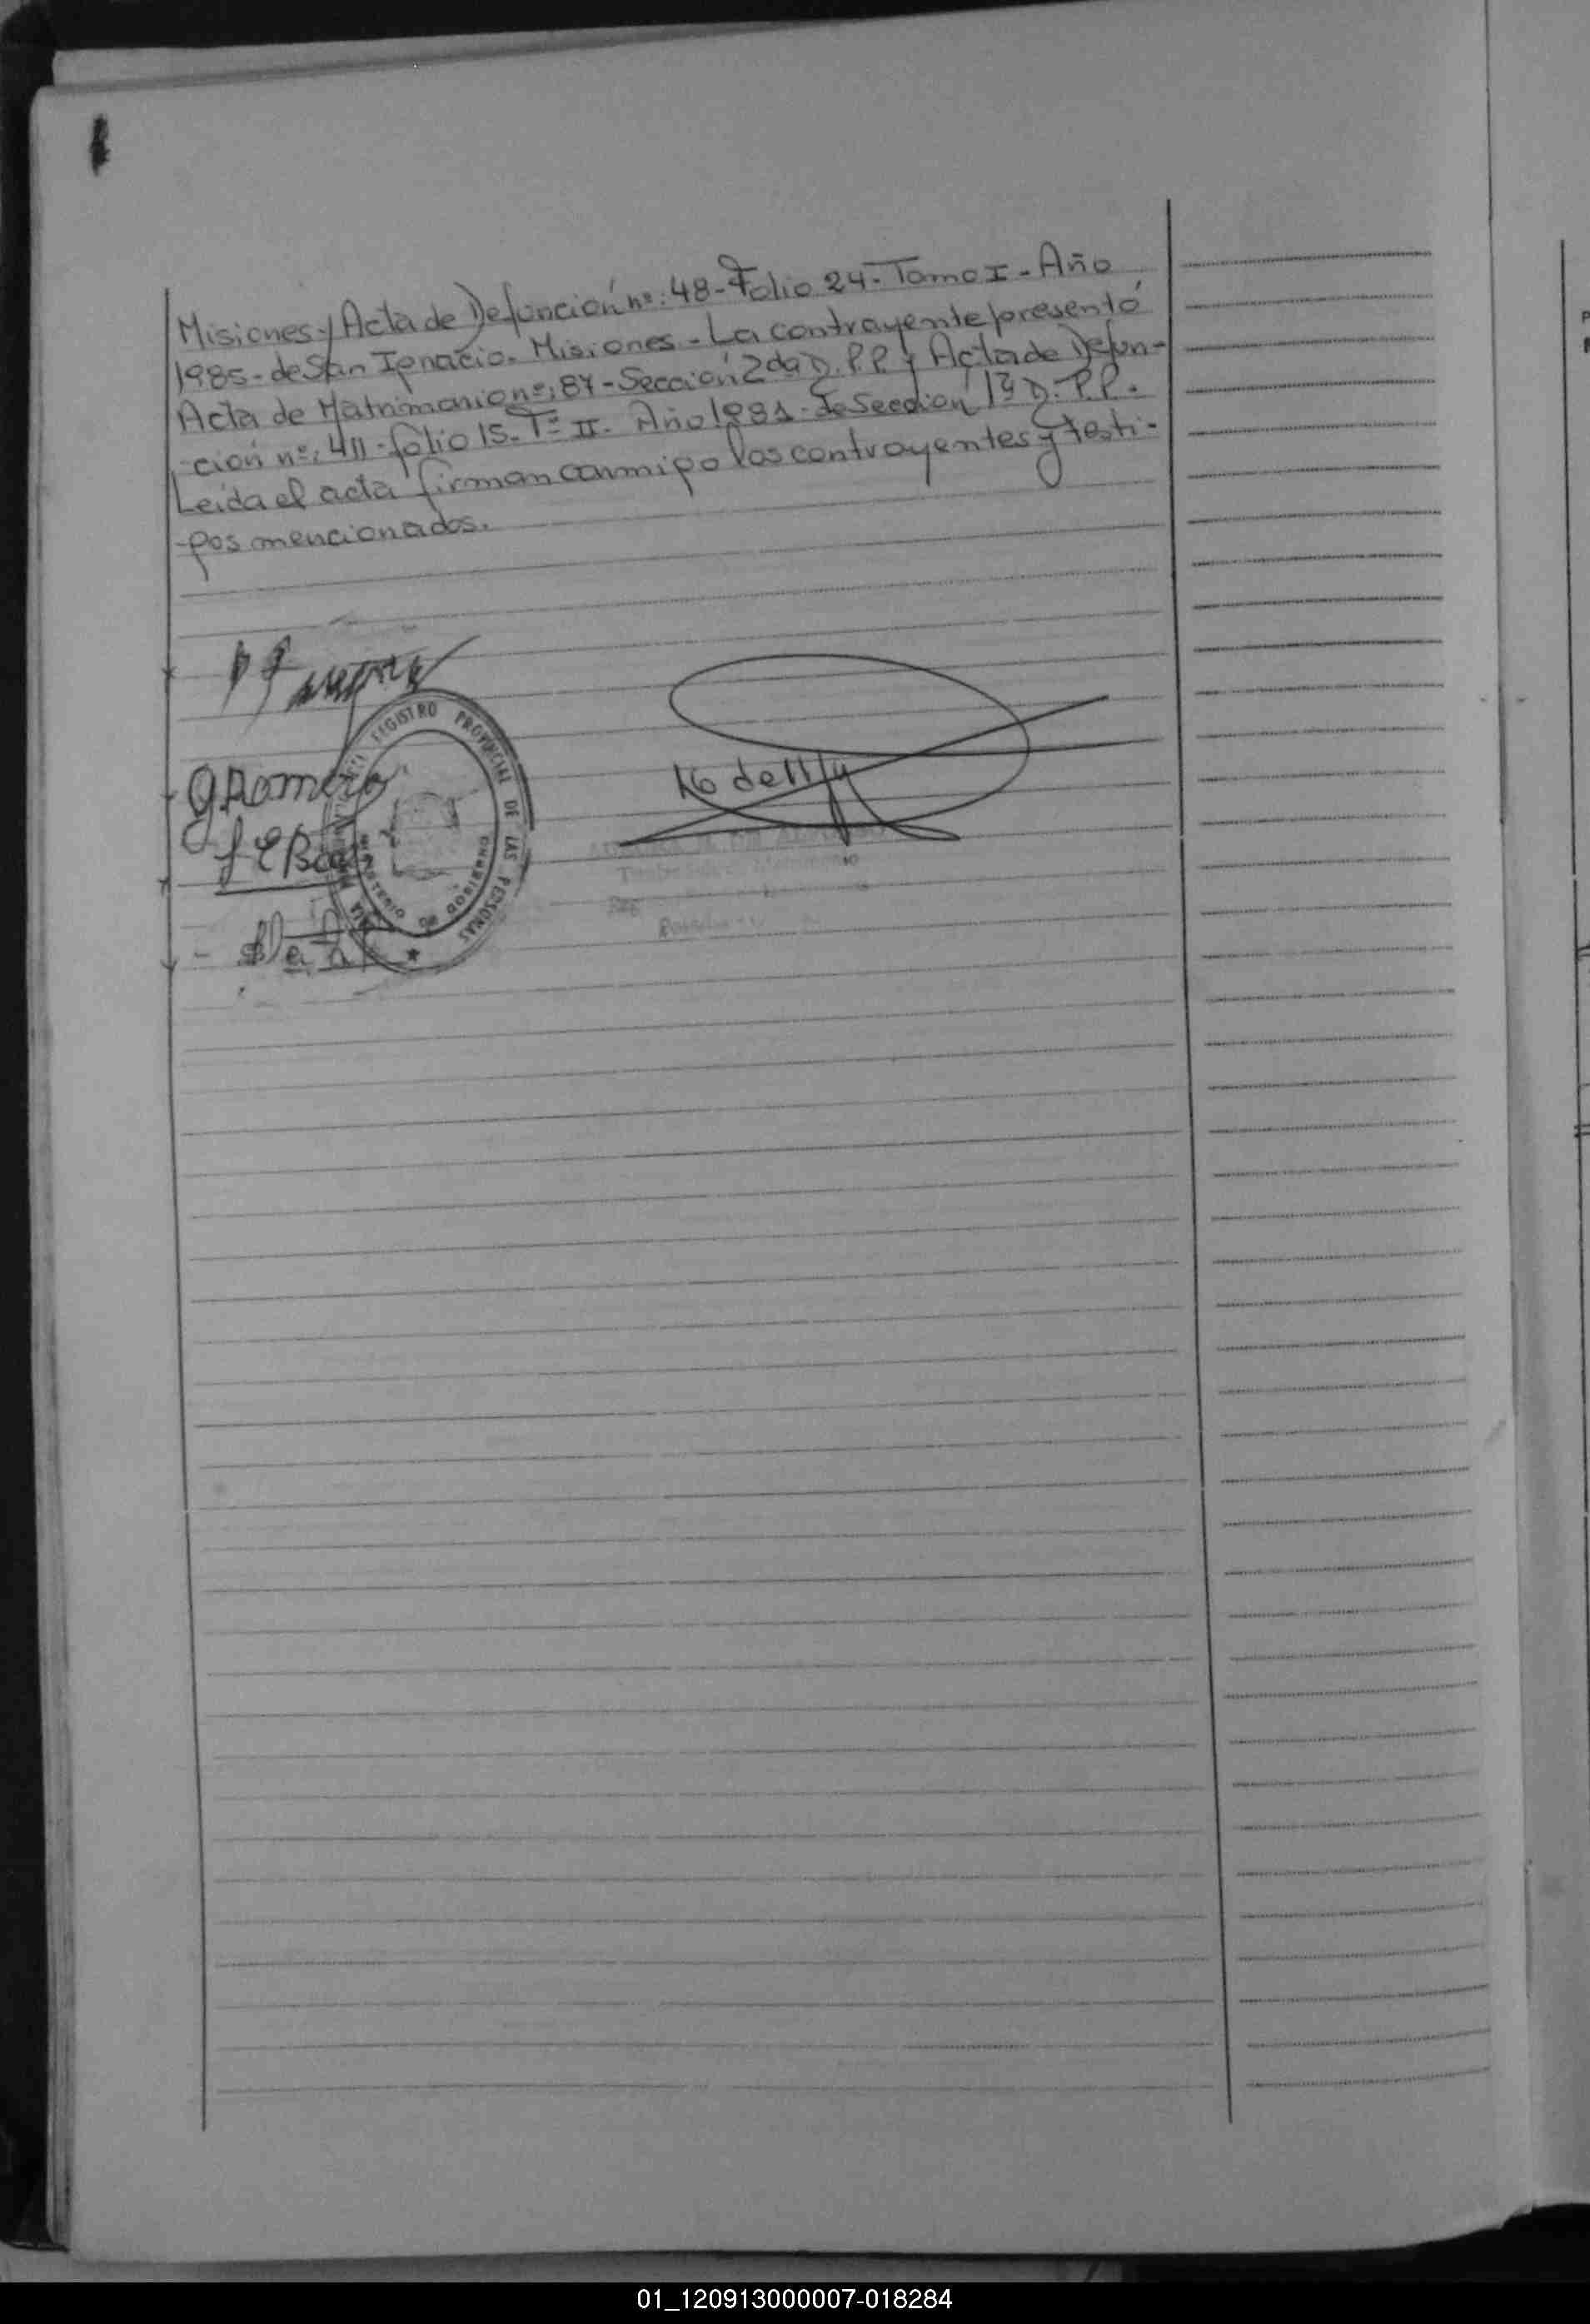 Misiones y Acta de Defunción nº: 48 - Folio 24 - Tomo I - Año
1985 - de San Ignacio. Misiones - La contrayente presentó
Acta de Matrimonio nº: 87 - Sección 2da D. P.P. y Acta de Defun-
-ción nº: 411 - folio 15. Tº II - Año 1981 - de Sección 1ª D. P.P. -
Leída el acta firman conmigo los contrayentes y testi-
-gos mencionados.
REGISTRO PROVINCIAL DE LAS PERSONAS
MINISTERIO DE GOBIERNO
01_120913000007-018284